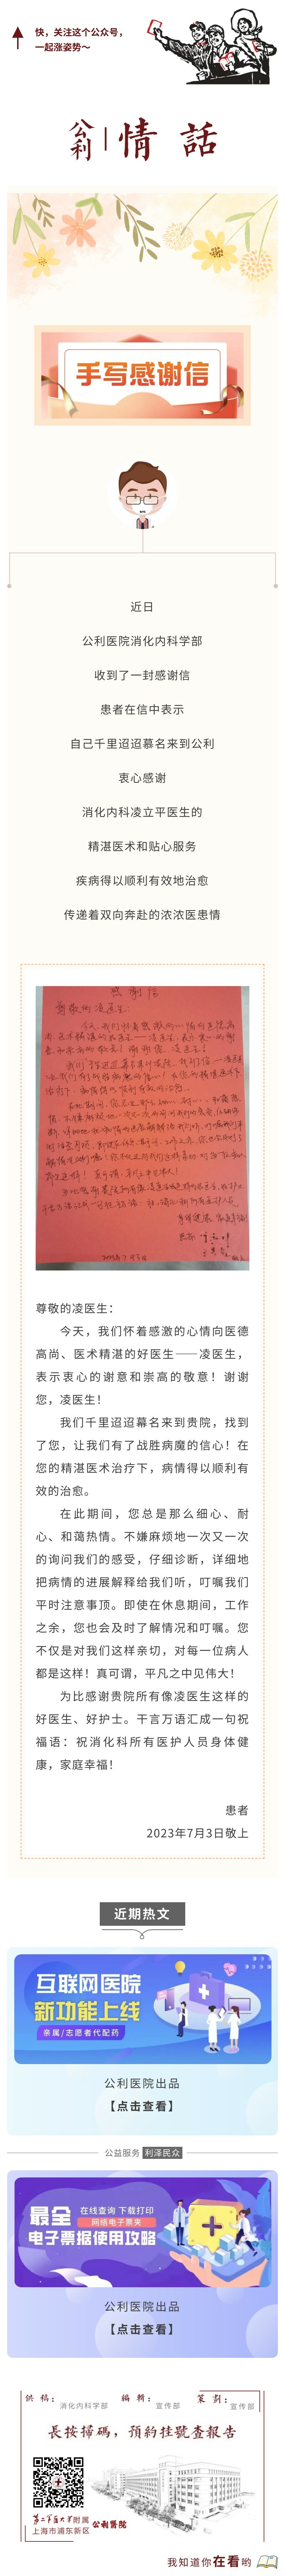 快，关注这个公众号，
一起涨姿势～
公利 情 話
手写感谢信
近日
公利医院消化内科学部
收到了一封感谢信
患者在信中表示
自己千里迢迢慕名来到公利
衷心感谢
消化内科凌立平医生的
精湛医术和贴心服务
疾病得以顺利有效地治愈
传递着双向奔赴的浓浓医患情
感谢信
尊敬的凌医生：
尊敬的凌医生：
今天，我们怀着感激的心情向医德
高尚、医术精湛的好医生——凌医生，
表示衷心的谢意和崇高的敬意！谢谢
您，凌医生！
我们千里迢迢幕名来到贵院，找到
了您，让我们有了战胜病魔的信心！在
您的精湛医术治疗下，病情得以顺利有
效的治愈。
在此期间，您总是那么细心、耐
心、和蔼热情。不嫌麻烦地一次又一次
的询问我们的感受，仔细诊断，详细地
把病情的进展解释给我们听，叮嘱我们
平时注意事项。即使在休息期间，工作
之余，您也会及时了解情况和叮嘱。您
不仅是对我们这样亲切，对每一位病人
都是这样！真可谓，平凡之中见伟大！
为比感谢贵院所有像凌医生这样的
好医生、好护士。千言万语汇成一句祝
福语：祝消化科所有医护人员身体健
康，家庭幸福！
患者
2023年7月3日敬上
近期热文
互联网医院
新功能上线
亲属/志愿者代配药
公利医院出品
【点击查看】
公益服务 利泽民众
最全 在线查询 下载打印
网络电子票夹
电子票据使用攻略
公利医院出品
【点击查看】
供稿：消化内科学部 编辑：宣传部 策划：宣传部
長按掃碼，預約挂號查報告
第二军医大学附属
上海市浦东新区 公利醫院
我知道你在看哟